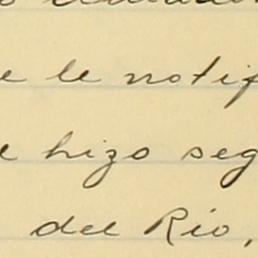 e le notif
e hizo seg
del Rio,